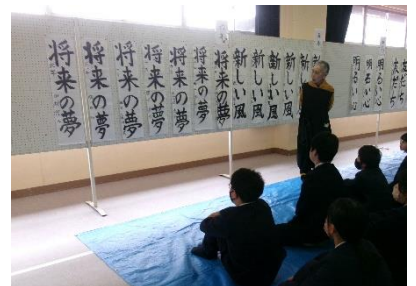 将来の夢
将来の夢
将来の夢
将来の夢
将来の夢
将来の夢
将来の夢
新しい風
新しい風
新しい風
新しい風
新し
明るい心
明るい心
明るい心
友だち
友だち